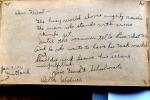 Dear Friend -
The busy world shoves angrily aside
The man who stands with arms
akimbo set,
Until the occasion tells him what to do;
And he who waits to have his task marked
out
Shall die and leave his errand
unfulfilled.
Your friend & Schoolmate